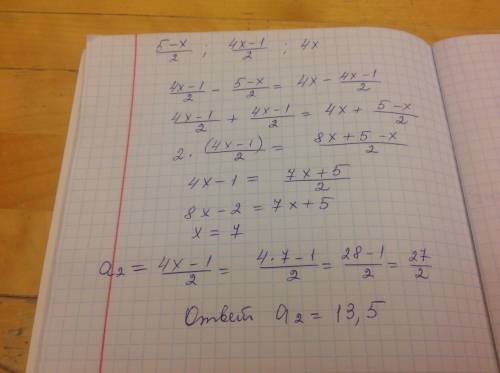 (5-x)/2 ; (4x-1)/2 ; 4x
(4x-1)/2 - (5-x)/2 = 4x - (4x-1)/2
(4x-1)/2 + (4x-1)/2 = 4x + (5-x)/2
2 · (4x-1)/2 = (8x+5-x)/2
4x-1 = (7x+5)/2
8x-2 = 7x+5
x = 7
a₂ = (4x-1)/2 = (4*7-1)/2 = (28-1)/2 = 27/2
Ответ a₂ = 13,5